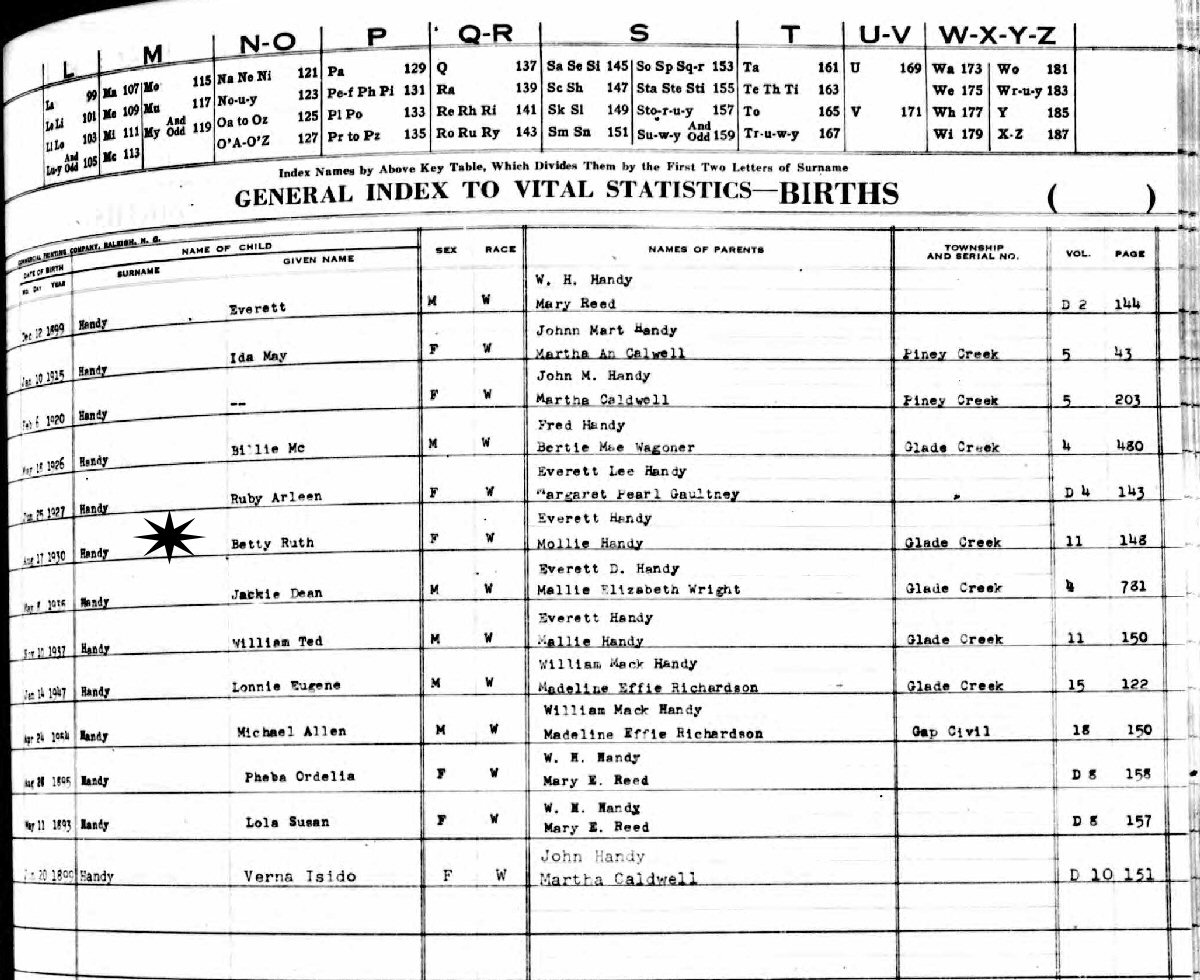 L M N-O P Q-R S T U-V W-X-Y-Z
La 99 Ma 107 Mo 115 Na Ne Ni 121 Pa 129 Q 137 Sa Se Si 145 So Sp Sq-r 153 Ta 161 U 169 Wa 173 Wo 181
Le Li 101 Me 109 Mu 117 No-u-y 123 Pe-f Ph Pi 131 Ra 139 Sc Sh 147 Sta Ste Sti 155 Te Th Ti 163 We 175 Wr-u-y 183
Ll Lo 103 Mi 111 My And Odd 119 Oa to Oz 125 Pl Po 133 Re Rh Ri 141 Sk Sl 149 Sto-r-u-y 157 To 165 V 171 Wh 177 Y 185
Lu-y And Odd 105 Mc 113 O'A-O'Z 127 Pr to Pz 135 Ro Ru Ry 143 Sm Sn 151 Su-w-y And Odd 159 Tr-u-w-y 167 Wi 179 X-Z 187
Index Names by Above Key Table, Which Divides Them by the First Two Letters of Surname
GENERAL INDEX TO VITAL STATISTICS—BIRTHS ( )
COMMERCIAL PRINTING COMPANY, RALEIGH, N. C.
DATE OF BIRTH NAME OF CHILD SEX RACE NAMES OF PARENTS TOWNSHIP AND SERIAL NO. VOL. PAGE
MO. DAY YEAR SURNAME GIVEN NAME
W. H. Handy
Dec 12 1899 Handy Everett M W Mary Reed D 2 144
Johnn Mart Handy
Jan 10 1915 Handy Ida May F W Martha An Calwell Piney Creek 5 43
John M. Handy
Feb 6 1920 Handy -- F W Martha Caldwell Piney Creek 5 203
Fred Handy
1926 Handy Billie Mc M W Bertie Mae Wagoner Glade Creek 4 480
Everett Lee Handy
1927 Handy Ruby Arleen F W Margaret Pearl Gaultney " D 4 143
Everett Handy
Aug 17 1930 Handy Betty Ruth F W Mollie Handy Glade Creek 11 148
Everett D. Handy
Handy Jackie Dean M W Mallie Elizabeth Wright Glade Creek 4 781
Everett Handy
Nov 10 1937 Handy William Ted M W Mallie Handy Glade Creek 11 150
William Mack Handy
Jan 14 1947 Handy Lonnie Eugene M W Madeline Effie Richardson Glade Creek 15 122
William Mack Handy
Apr 24 1954 Handy Michael Allen M W Madeline Effie Richardson Gap Civil 18 150
W. H. Handy
Aug 28 1895 Handy Pheba Ordelia F W Mary E. Reed D 8 158
W. H. Handy
May 11 1893 Handy Lola Susan F W Mary E. Reed D 8 157
John Handy
20 1899 Handy Verna Isido F W Martha Caldwell D 10 151